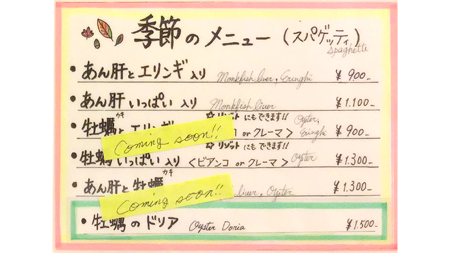 季節のメニュー(スパゲッティ)
Spaghetti
• あん肝とエリンギ入り Monkfish liver, Eringhi ¥900-
• あん肝いっぱい入り Monkfish liver ¥1.100-
リゾットにもできます!! Oyster,
• 牡蠣とエリンギ or クレーマ> Eringhi ¥900-
カキ
Coming soon!!
• 牡蠣いっぱい入り <ビアンコ or クレーマ> oyster ¥1.300-
• あん肝と牡蠣 liver, Oyster ¥1.300-
カキ
Coming soon!!
• 牡蠣のドリア Oyster Doria ¥1.500-